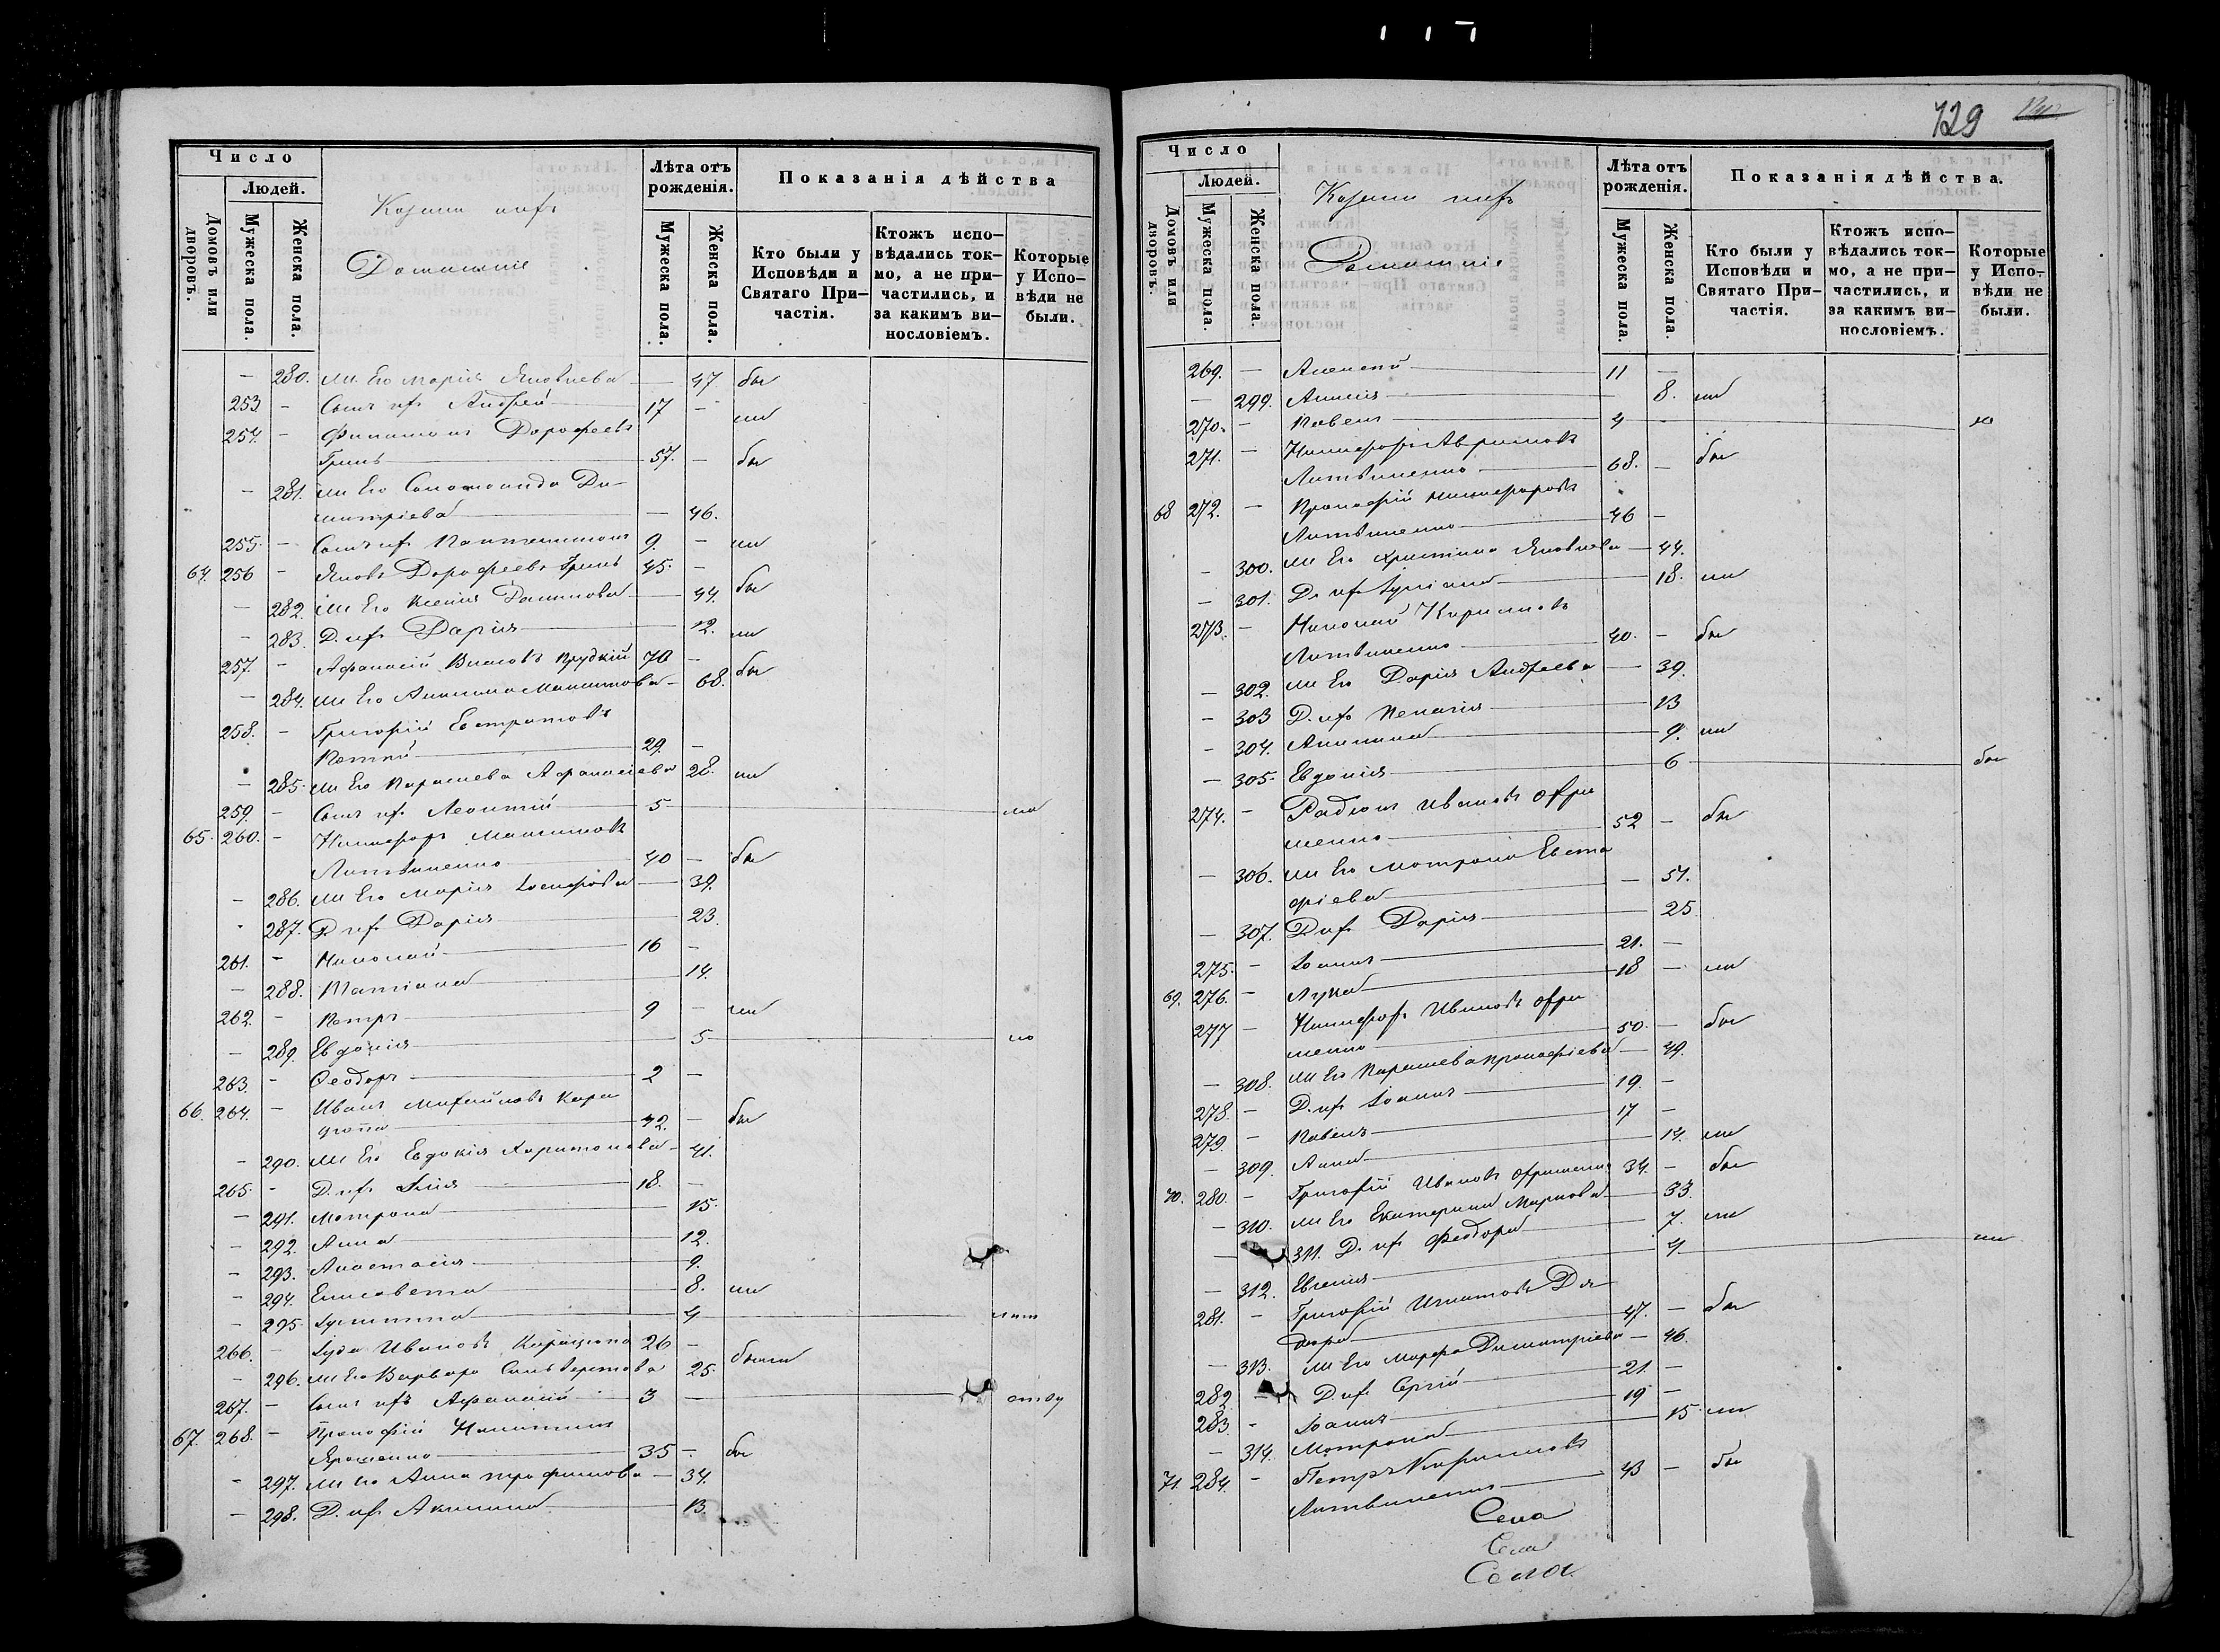 729
Число
Людей.
Домовъ или дворовъ.
Мужеска пола.
Женска пола.
Козаки ихъ
Домашніе
Лѣта отъ рожденія.
Мужеска пола.
Женска пола.
Показанія дѣйства
Кто были у Исповѣди и Святаго Причастія.
Ктожъ исповѣдались токмо, а не причастились, и за какимъ винословіемъ.
Которые у Исповѣди не были.
— 280. Же Его Марія Яковлева — 47 бы
253 - Сынъ ихъ Андрей 17 -
254. - Филимонъ Дорофеевъ
Гринь 57. - бы
- 281. Же Его Соломонида Ди-
митріева — 46.
255. - Сынъ ихъ Пантелимонъ 9. -
64. 256 - Яковъ Дорофеевъ Гринь 45. -
- 282. Же Его Ксенія Данилова 44. бы
- 283. Д. ихъ Дарія 12.
257. - Афанасій Власовъ Прудкій 70 -
- 284. Же Его Акилина Максимова - 68. бы
258. - Григорій Евстратовъ
29. -
- 285. Же Его Параскева Афанасіева 28.
259. - Сынъ ихъ Леонтій 5
65. 260. - Никифоръ Максимовъ
Литвиненко 40 - бы
- 286. Же Его Марія Іосифова 39.
287. Д ихъ Дарія 23.
261. - Николай 16 -
- 288. Татіана 14.
262. - Петръ 9 -
- 289. Евдокія 5
263. - Феодоръ 2 -
66. 264. - Иванъ Михайловъ
42. - бы
- 290. Же Его Евдокія Харитонова - 41.
265. - Д. ихъ 18. -
- 291. Мотрона 15.
- 292. Анна 12.
- 293. Анастасія 9.
- 294. Елисавета 8.
- 295. Іустина 4
266. - Іуда Ивановъ 26 -
- 296. Же Его Варвара Сильверстова 25.
267. - Сынъ ихъ Афанасій 3 -
67. 268. - Прокофій Никитинъ
Ярошенко 35 - бы
- 297. Же Его Анна Трофимова - 34.
- 298. Д. ихъ Акилина 13.
Число
Людей.
Домовъ или дворовъ.
Мужеска пола.
Женска пола.
Козаки ихъ
Домашніе
Лѣта отъ рожденія.
Мужеска пола.
Женска пола.
Показанія дѣйства.
Кто были у Исповѣди и Святаго Причастія.
Ктожъ исповѣдались токмо, а не причастились, и за какимъ винословіемъ.
Которые у Исповѣди не были.
269. - Алексій 11 -
- 299. 8.
270. - Павелъ 4
271. - Никифоръ
Литвиненко 68. - бы
68 272. - Прокофій Никифоровъ
Литвиненко 46 -
- 300. Же Его Христина Яковлева 44.
- 301. Д. ихъ Іуліана 18.
273. - Николай Кириловъ
Литвиненко 40. - бы
- 302. Же Его Дарія Андреева 39.
- 303 Д. ихъ Пелагія 13
- 304. Акилина 9.
- 305. Евдокія 6
274. - Радіонъ Ивановъ Охри
менко 52 - бы
- 306. Же Его Мотрона Евста
фіева — 51.
- 307. Д ихъ Дарія 25.
275. - Іоаннъ 21. -
69. 276. - Лука 18 -
277 - Никифоръ Ивановъ Охри
менко 50. - бы
- 308. Же Его Параскева Прокофіева 49.
278. - Д. ихъ Іоаннъ 19. -
279. - Павелъ 17 -
- 309. Анна 14.
70. 280. - Григорій Ивановъ Охрименко 34. - бы
- 310. Же Его Екатерина Маркова 33.
- 311. Д. ихъ Феодора 7.
- 312. Евгенія 4
281. - Григорій Игнатовъ
47. - бы
- 313. Же Его Марфа Димитріева - 46.
282 - Д. ихъ Сергій 21. -
283. - Іоаннъ 19 -
- 314. Мотрона 15
71. 284. - Петръ Кириловъ
Литвиненко 43 - бы
Села
Села
Села